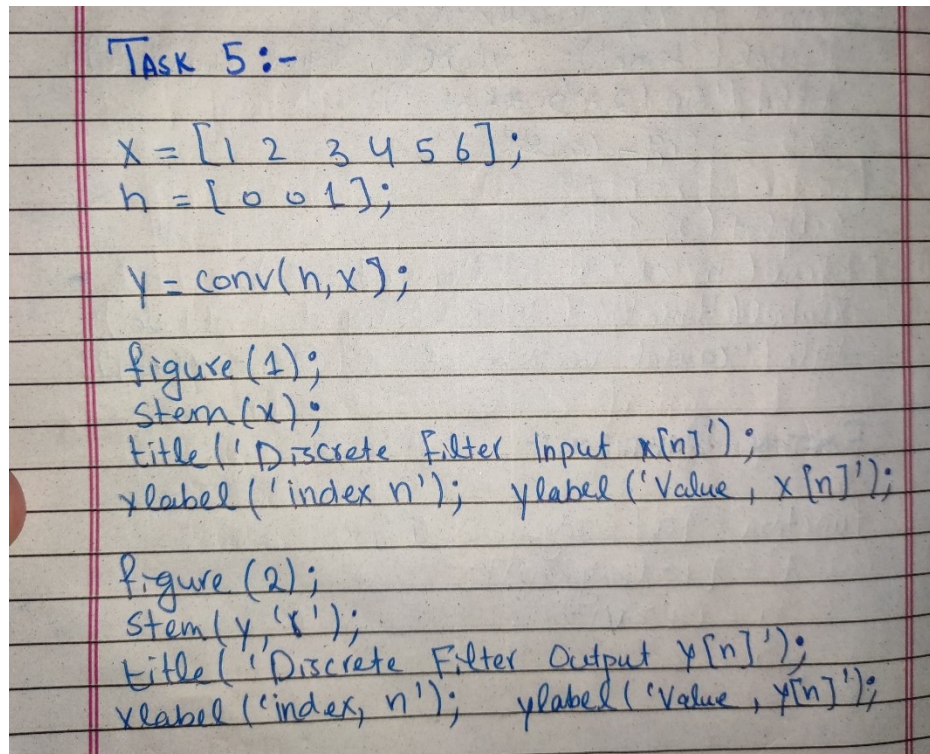 TASK 5:-
x = [1 2 3 4 5 6];
h = [0 0 1];
y = conv(h,x];
figure(1);
stem(x);
title('Discrete Filter Input x[n]');
xlabel('index n'); ylabel('Value, x[n]');
figure(2);
stem(y,'r');
title('Discrete Filter Output y[n]');
xlabel('index, n'); ylabel('Value, y[n]');